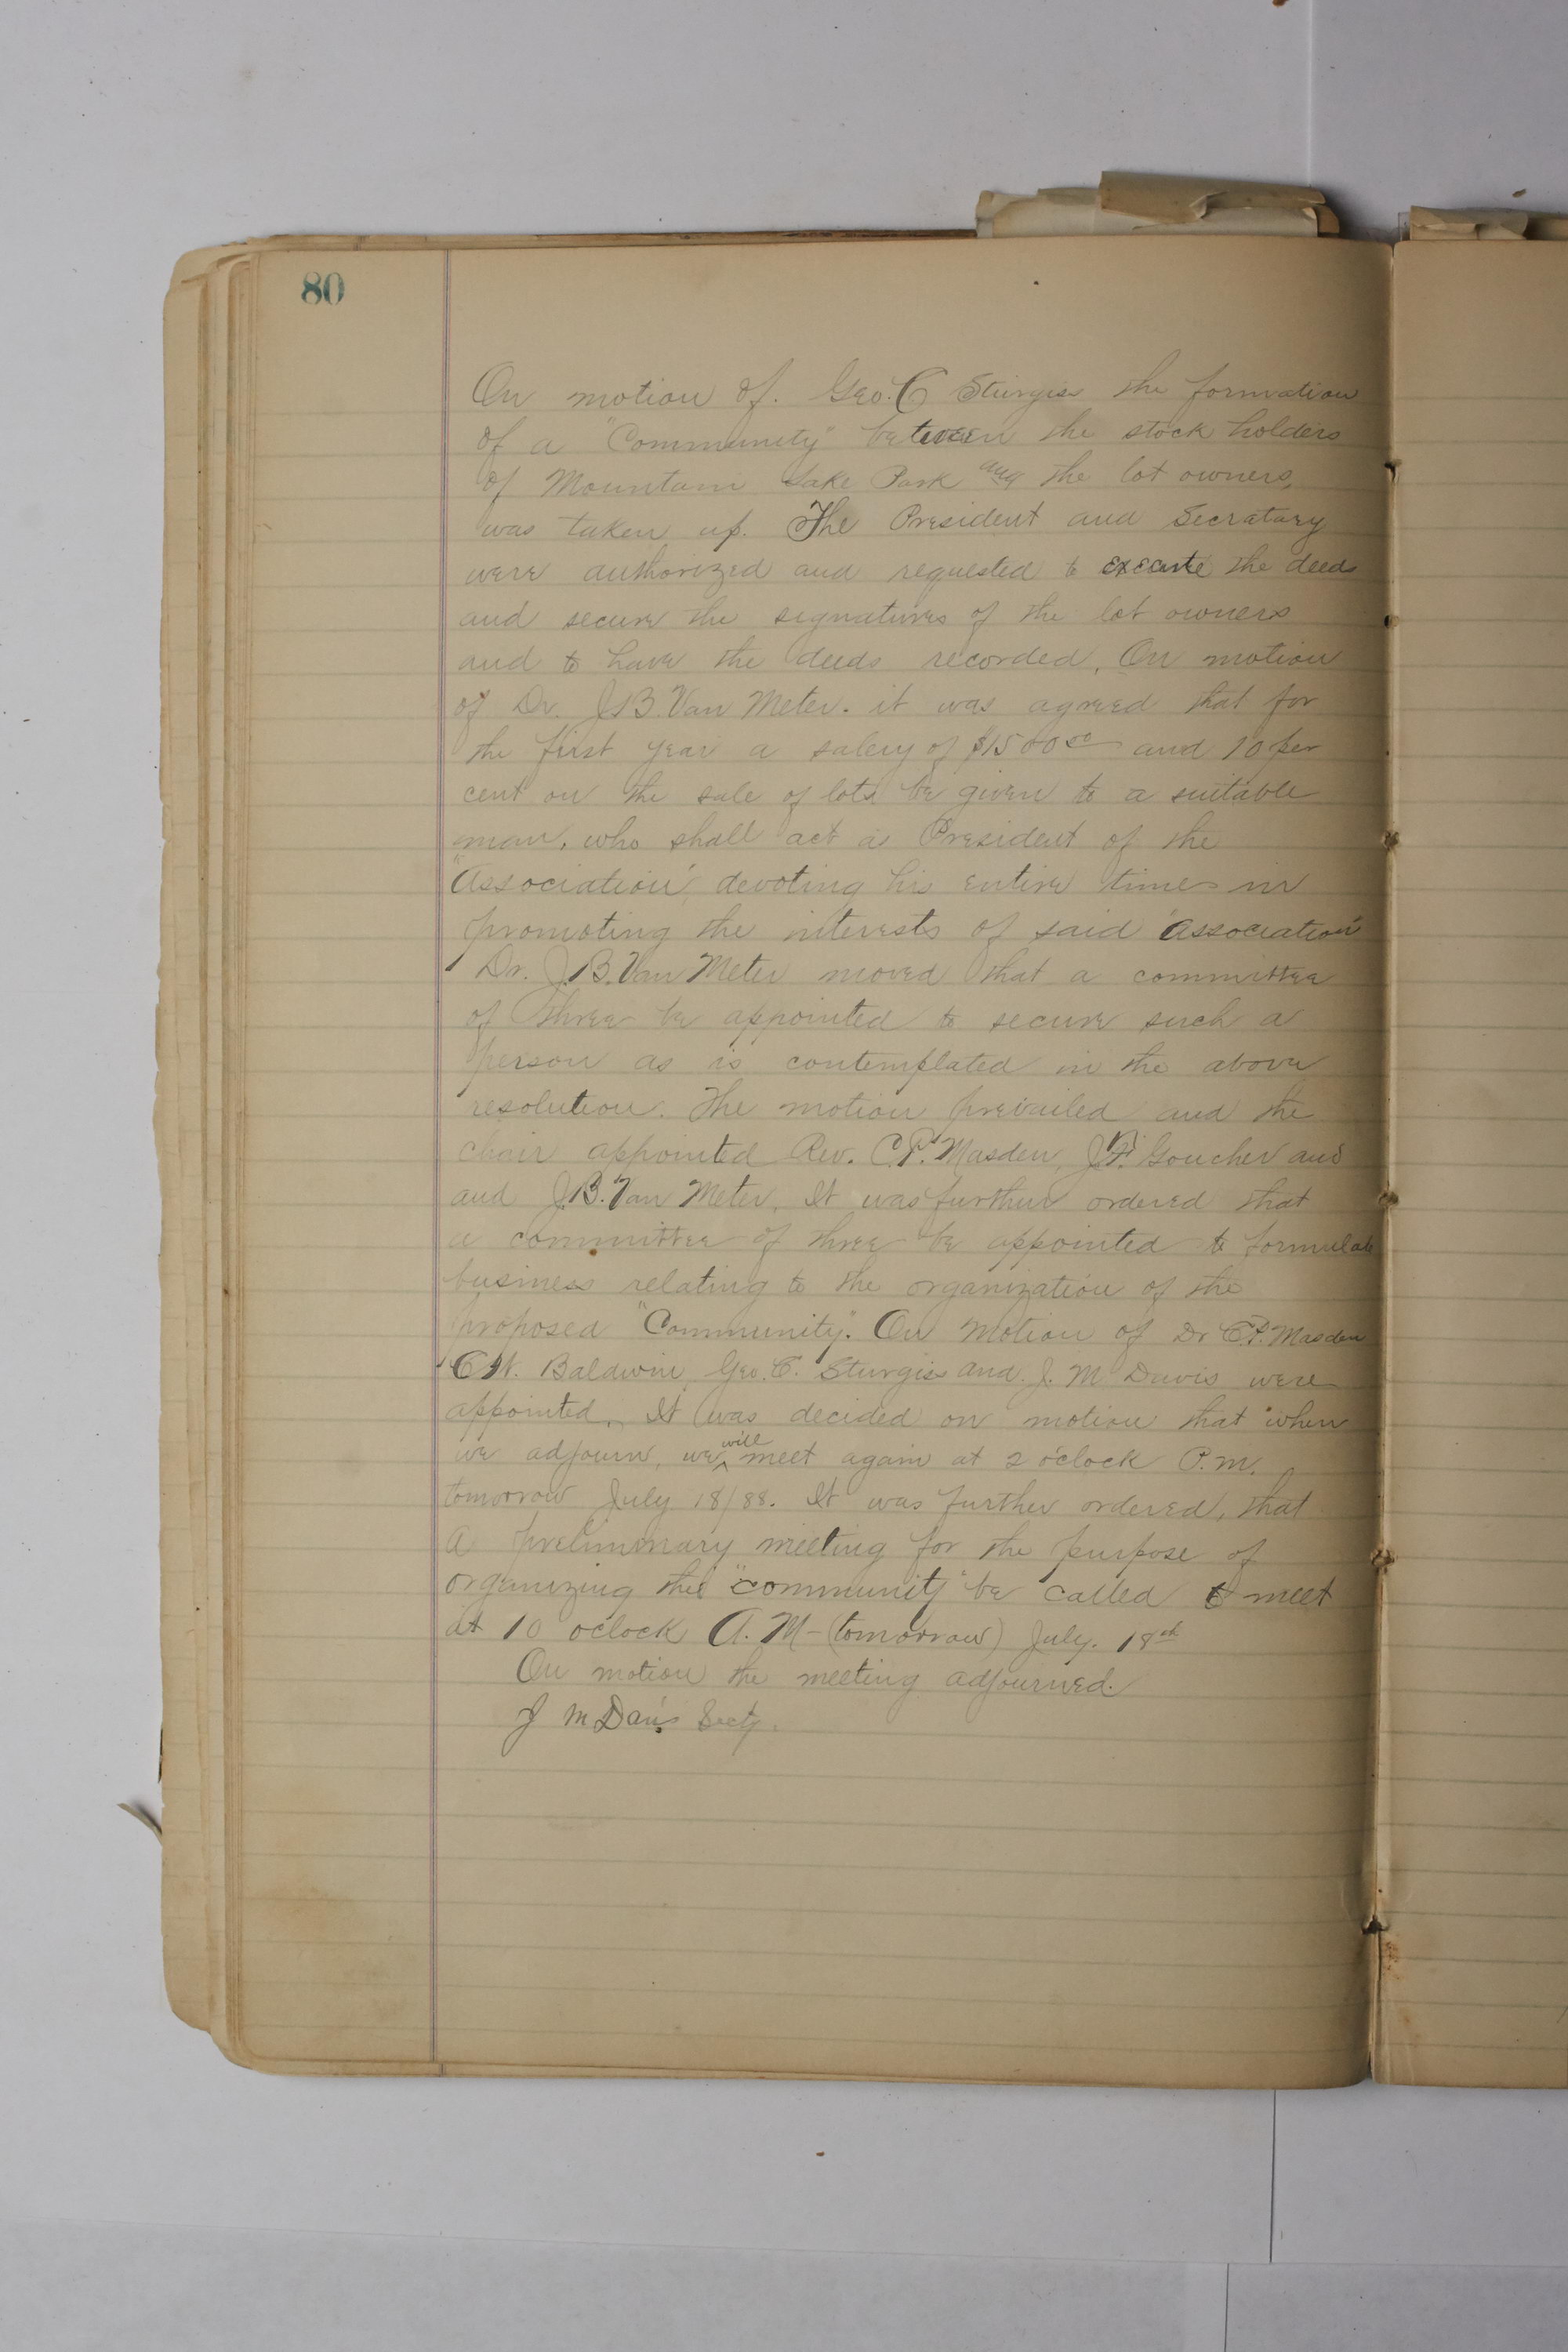 80
On motion of. Geo. C Sturgiss the formation
of a "Community" between the stock holders
of Mountain Lake Park and the lot owners,
was taken up. The President and Secratary
were authorized and requested to execute the deeds
and secure the signatures of the lot owners
and to have the deeds recorded. On motion
of Dr. J.B. Van Meter. it was agreed that for
the first year a salery of $1500 00 and 10 per
cent on the sale of lots be given to a suitable
man, who shall act as President of the
"Association", devoting his entire time in
promoting the interests of said "Association"
Dr. J.B. Van Meter moved that a committee
of three be appointed to secure such a
person as is contemplated in the above
resolution. The motion prevailed and the
chair appointed Rev. C.P. Masden, J.F. Goucher and
and J.B. Van Meter. It was further ordered that
a committee of three be appointed to formulate
business relating to the organization of the
proposed "Community". On Motion of Dr C.P. Masden
C.W. Baldwin, Geo. C. Sturgiss and J. M Davis were
appointed. It was decided on motion that when
we adjourn, we will meet again at 2 o'clock P.M.
tomorrow July 18/88. It was further ordered, that
a preliminary meeting for the purpose of
organizing the "community" be called to meet
at 10 oclock A.M - (tomorrow) July. 18th
On motion the meeting adjourned.
J M Davis Secty.